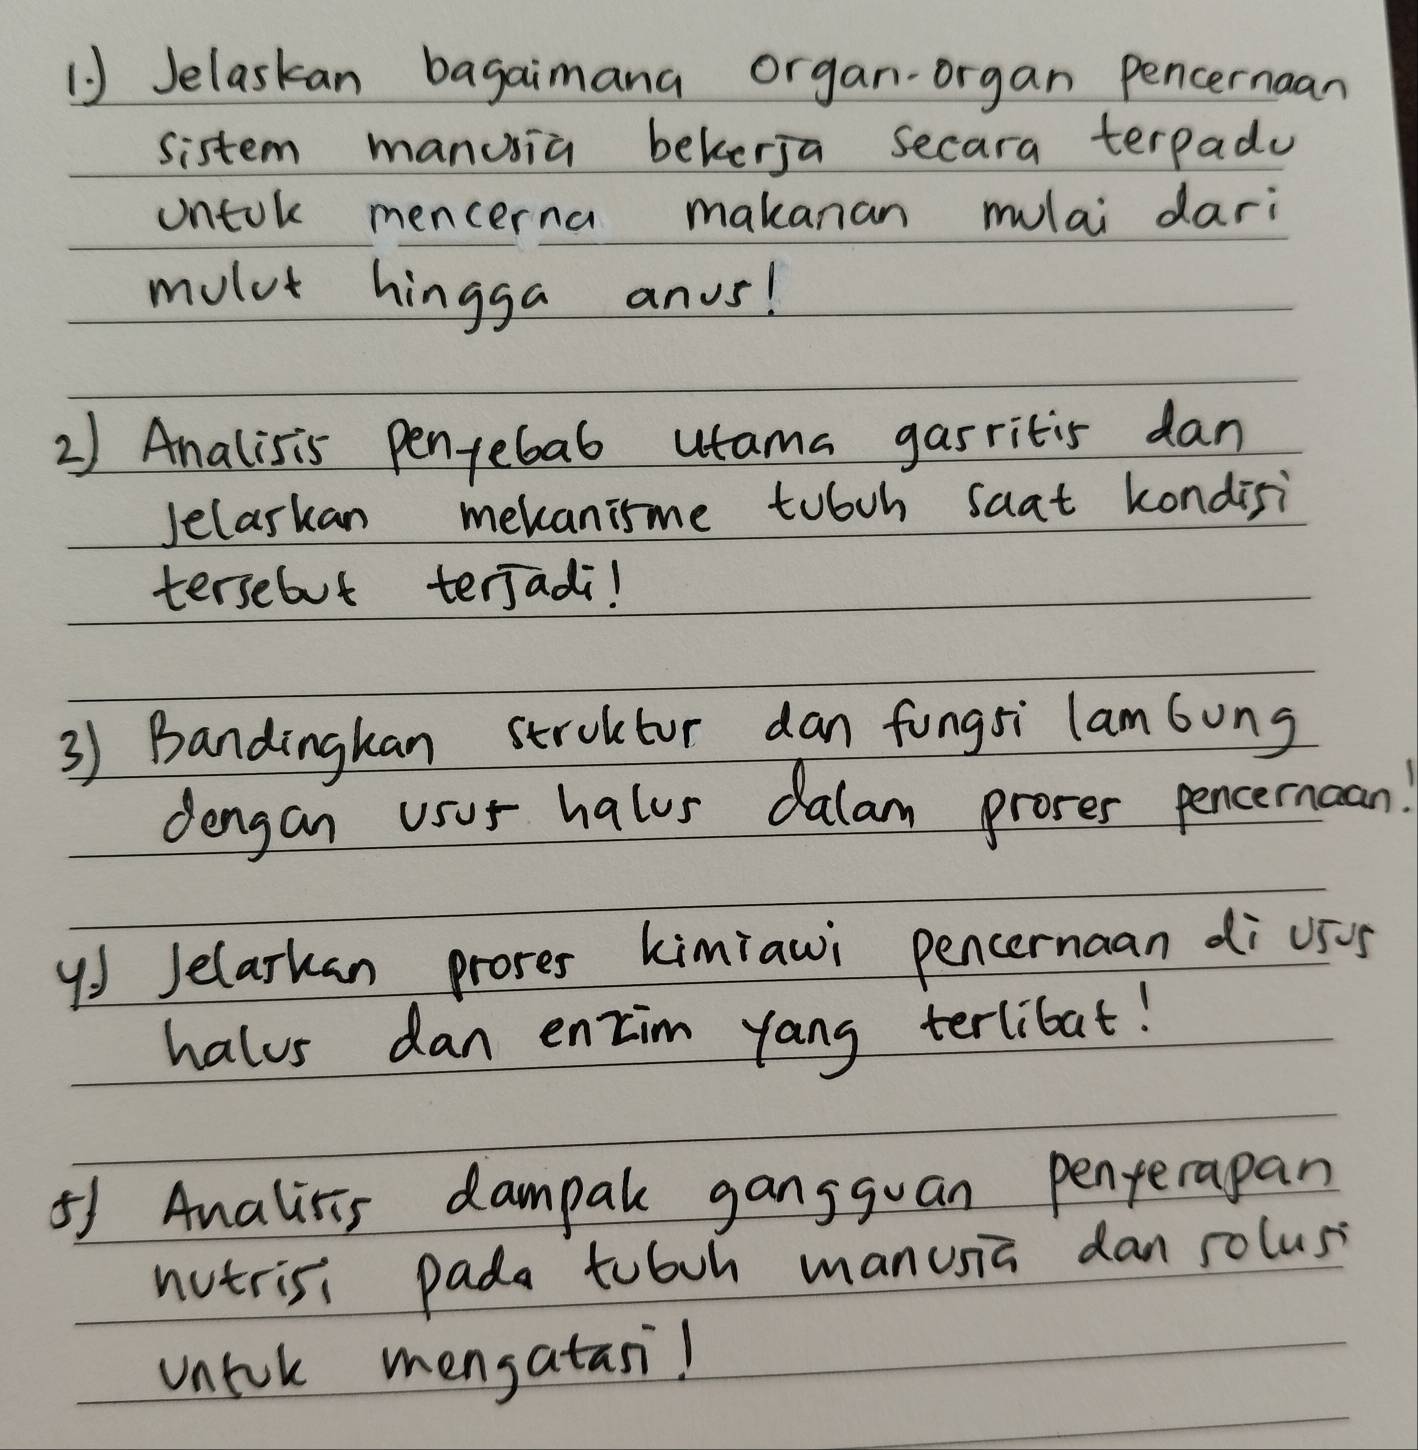 1.) Jelaskan bagaimana organ-organ pencernaan
sistem manusia bekerja secara terpadu
untuk mencerna makanan mulai dari
mulut hingga anus!
2) Analisis penyebab utama gastritis dan
jelaskan mekanisme tubuh saat kondisi
tersebut terjadi!
3) Bandingkan struktur dan fungsi lambung
dengan usus halus dalam proses pencernaan!
4.) Jelaskan proses kimiawi pencernaan di usus
halus dan enzim yang terlibat!
5) Analisis dampak gangguan penyerapan
nutrisi pada tubuh manusia dan solusi
untuk mengatasi!